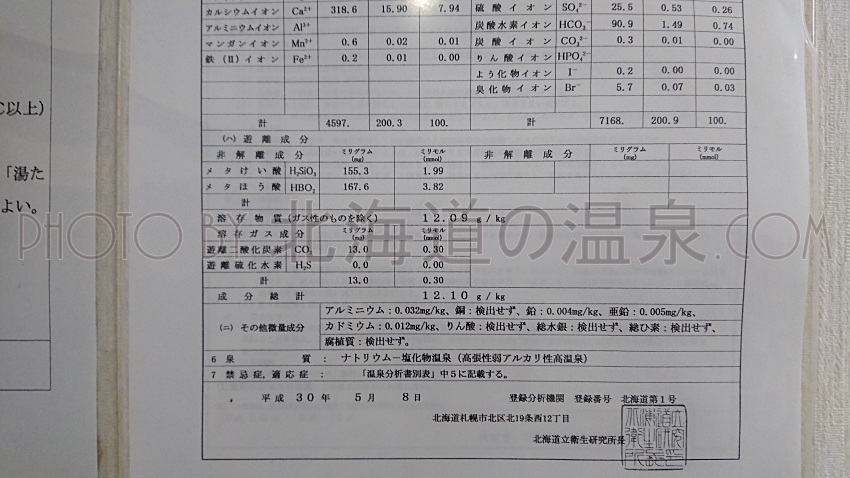 カルシウムイオン Ca²⁺ 318.6 15.90 7.94 硫酸イオン SO₄²⁻ 25.5 0.53 0.26
アルミニウムイオン Al³⁺ 炭酸水素イオン HCO₃⁻ 90.9 1.49 0.74
マンガンイオン Mn²⁺ 0.6 0.02 0.01 炭酸イオン CO₃²⁻ 0.3 0.01 0.00
鉄(Ⅱ)イオン Fe²⁺ 0.2 0.01 0.00 りん酸イオン HPO₄²⁻
よう化物イオン I⁻ 0.2 0.00 0.00
臭化物イオン Br⁻ 5.7 0.07 0.03
計 4597. 200.3 100. 計 7168. 200.9 100.
(ハ)遊離成分
非解離成分 ミリグラム(mg) ミリモル(mmol) 非解離成分 ミリグラム(mg) ミリモル(mmol)
メタけい酸 H₂SiO₃ 155.3 1.99
メタほう酸 HBO₂ 167.6 3.82
計
溶存物質(ガス性のものを除く) 12.09 g/kg
溶存ガス成分 ミリグラム(mg) ミリモル(mmol)
遊離二酸化炭素 CO₂ 13.0 0.30
遊離硫化水素 H₂S 0.0 0.00
計 13.0 0.30
成分総計 12.10 g/kg
(ニ) その他微量成分 アルミニウム:0.032mg/kg、銅:検出せず、鉛:0.004mg/kg、亜鉛:0.005mg/kg、
カドミウム:0.012mg/kg、りん酸:検出せず、総水銀:検出せず、総ひ素:検出せず、
腐植質:検出せず。
6 泉質: ナトリウム-塩化物温泉(高張性弱アルカリ性高温泉)
7 禁忌症、適応症: 「温泉分析書別表」中5に記載する。
平成 30年 5月 8日 登録分析機関 登録番号 北海道第1号
北海道札幌市北区北19条西12丁目
北海道立衛生研究所長
℃以上)
「湯た
よい。
PHOTO BY 北海道の温泉.COM